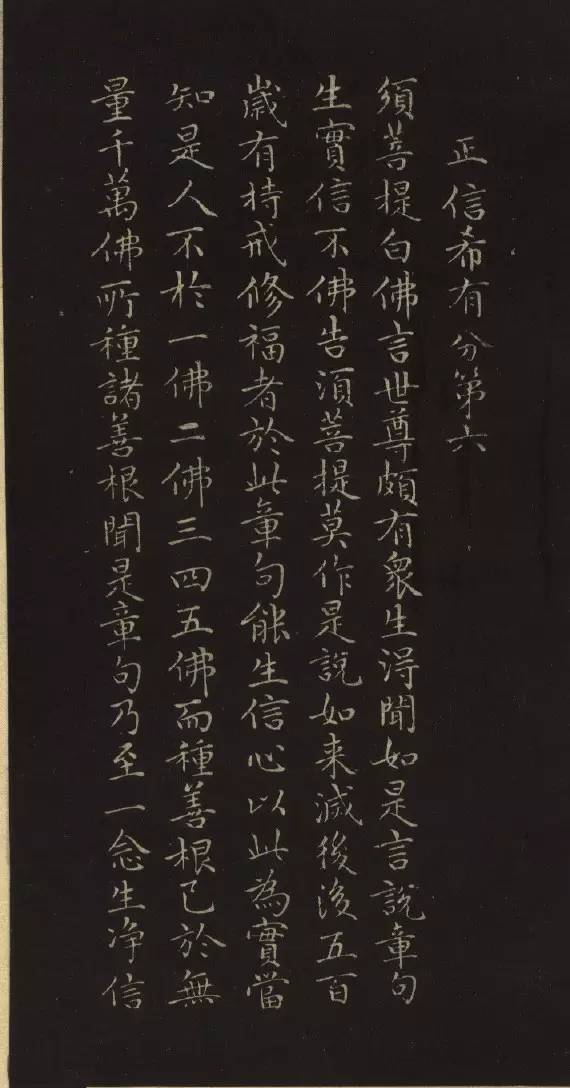 正信希有分第六
須菩提白佛言世尊頗有衆生得聞如是言說章句
生實信不佛告須菩提莫作是說如来滅後後五百
歲有持戒修福者於此章句能生信心以此為實當
知是人不於一佛二佛三四五佛而種善根已於無
量千萬佛所種諸善根聞是章句乃至一念生净信